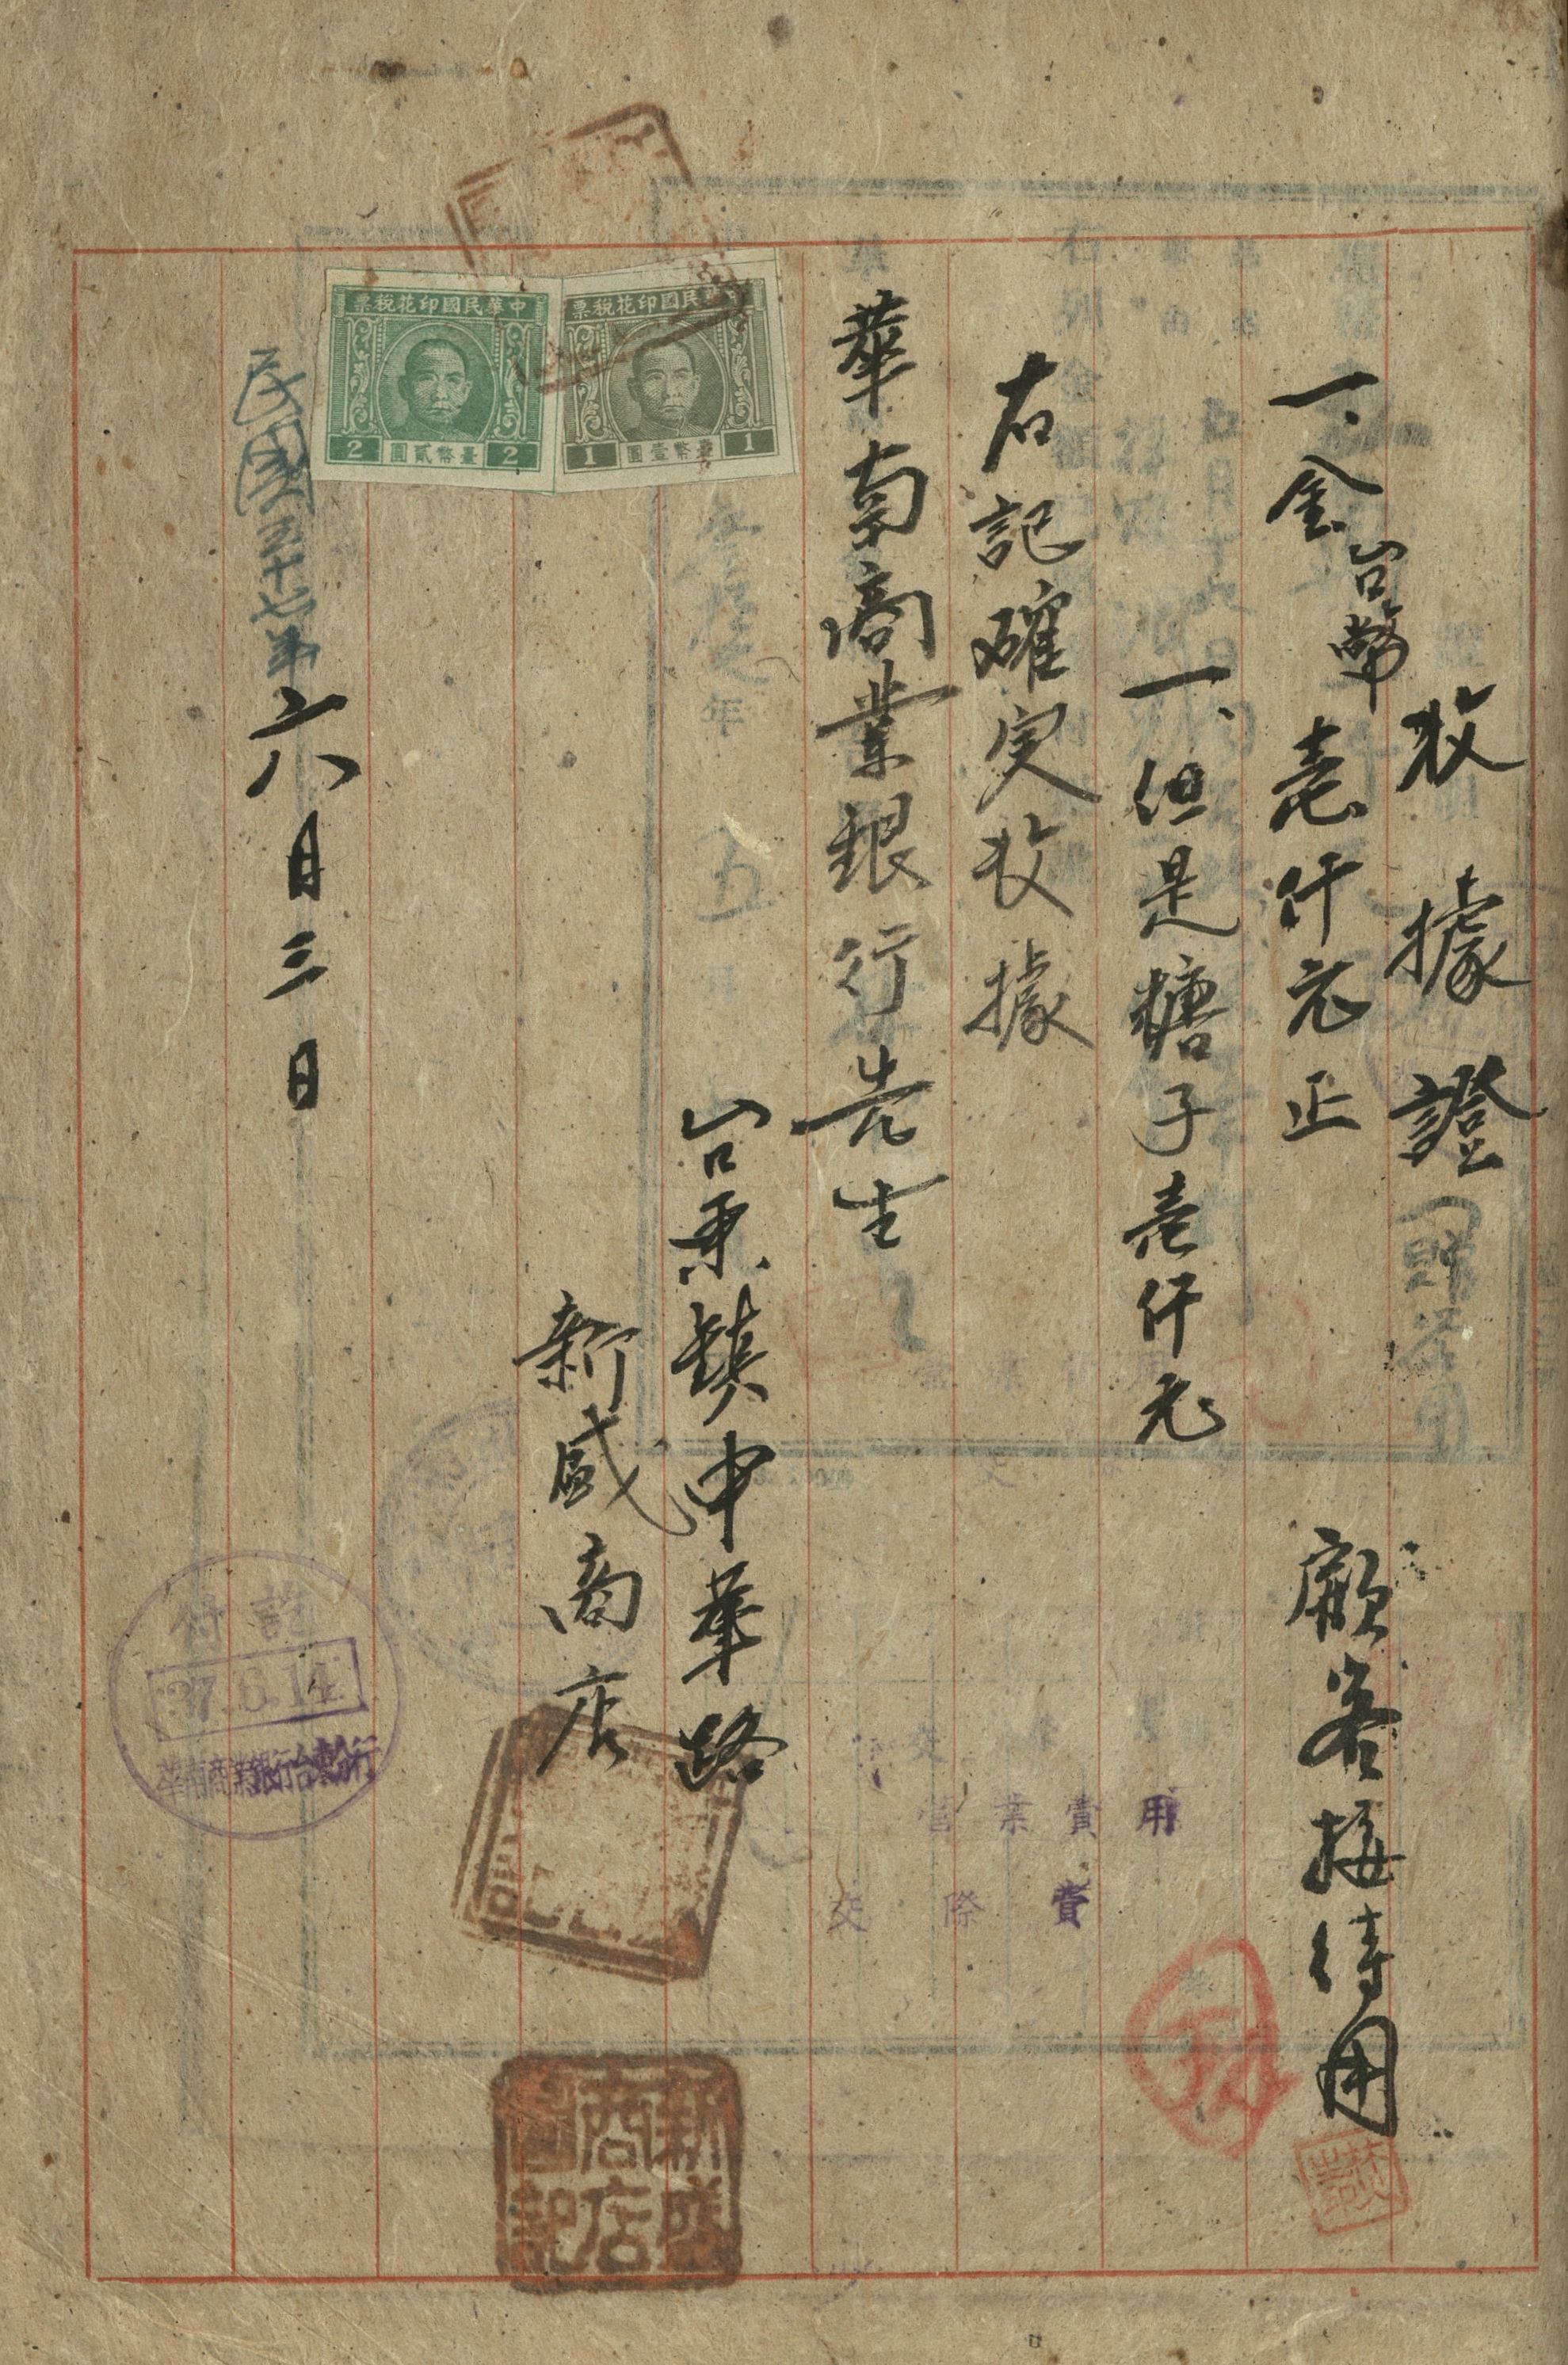 收據證
一、金台幣壱仟元正
顧客接待用
一、但是糖子壱仟元
右記確実收據
華南商業銀行先生
台東鎮中華路
新盛商店
民國三十七年六月三日
中華民國印花稅票
1 臺幣壹圓 1
中華民國印花稅票
2 臺幣貳圓 2
營業費用
交際費
新盛商店圖記
付訖
37.6.14
華南商業銀行台東分行